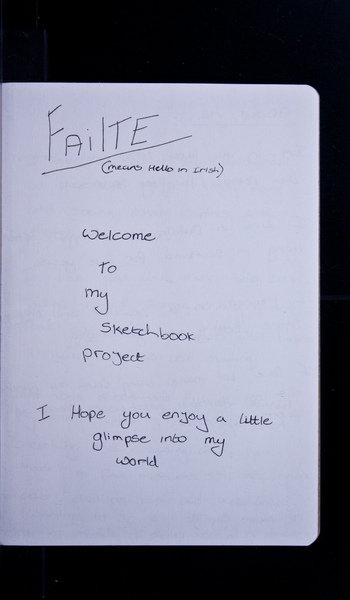 FAilTE
(means Hello in Irish)
Welcome
to
my
Sketchbook
project
I Hope you enjoy a little
glimpse into my
world